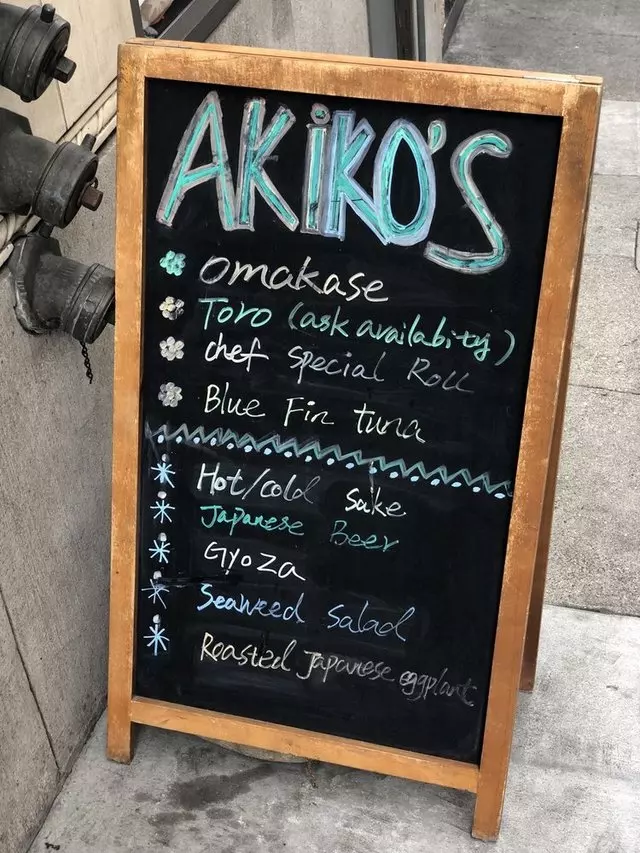 AKiKO'S
Omakase
Toro (ask availabity)
chef special Roll
Blue Fin tuna
Hot/cold sake
Japanese Beer
Gyoza
Seaweed Salad
Roasted Japanese eggplant